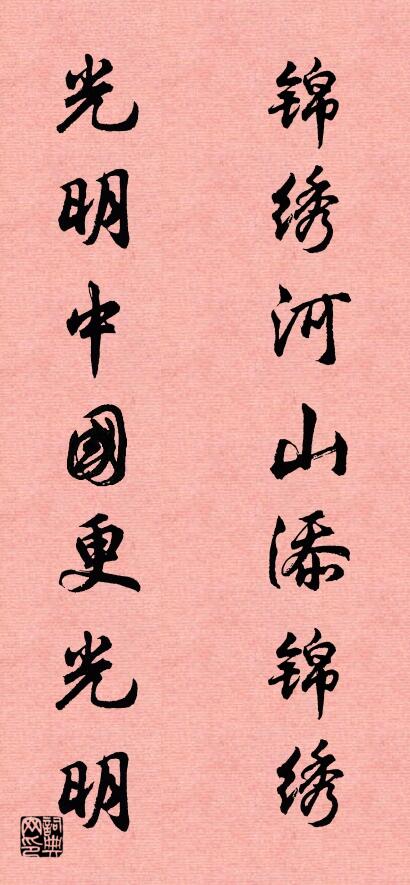 锦绣河山添锦绣
光明中國更光明
詞典
网印